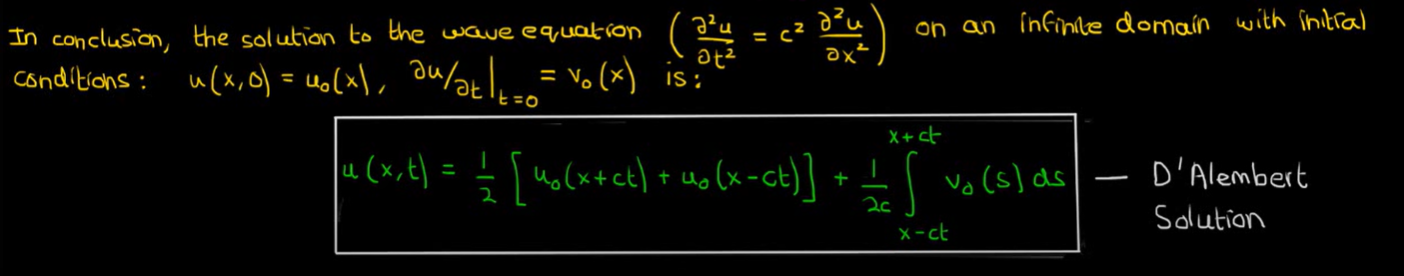 In conclusion, the solution to the wave equation (∂²u/∂t² = c² ∂²u/∂x²) on an infinite domain with initial
conditions: u(x,0) = u₀(x), ∂u/∂t|ₜ₌₀ = v₀(x) is:
u(x,t) = 1/2 [u₀(x+ct) + u₀(x-ct)] + 1/2c ∫_{x-ct}^{x+ct} v₀(s) ds — D'Alembert
Solution